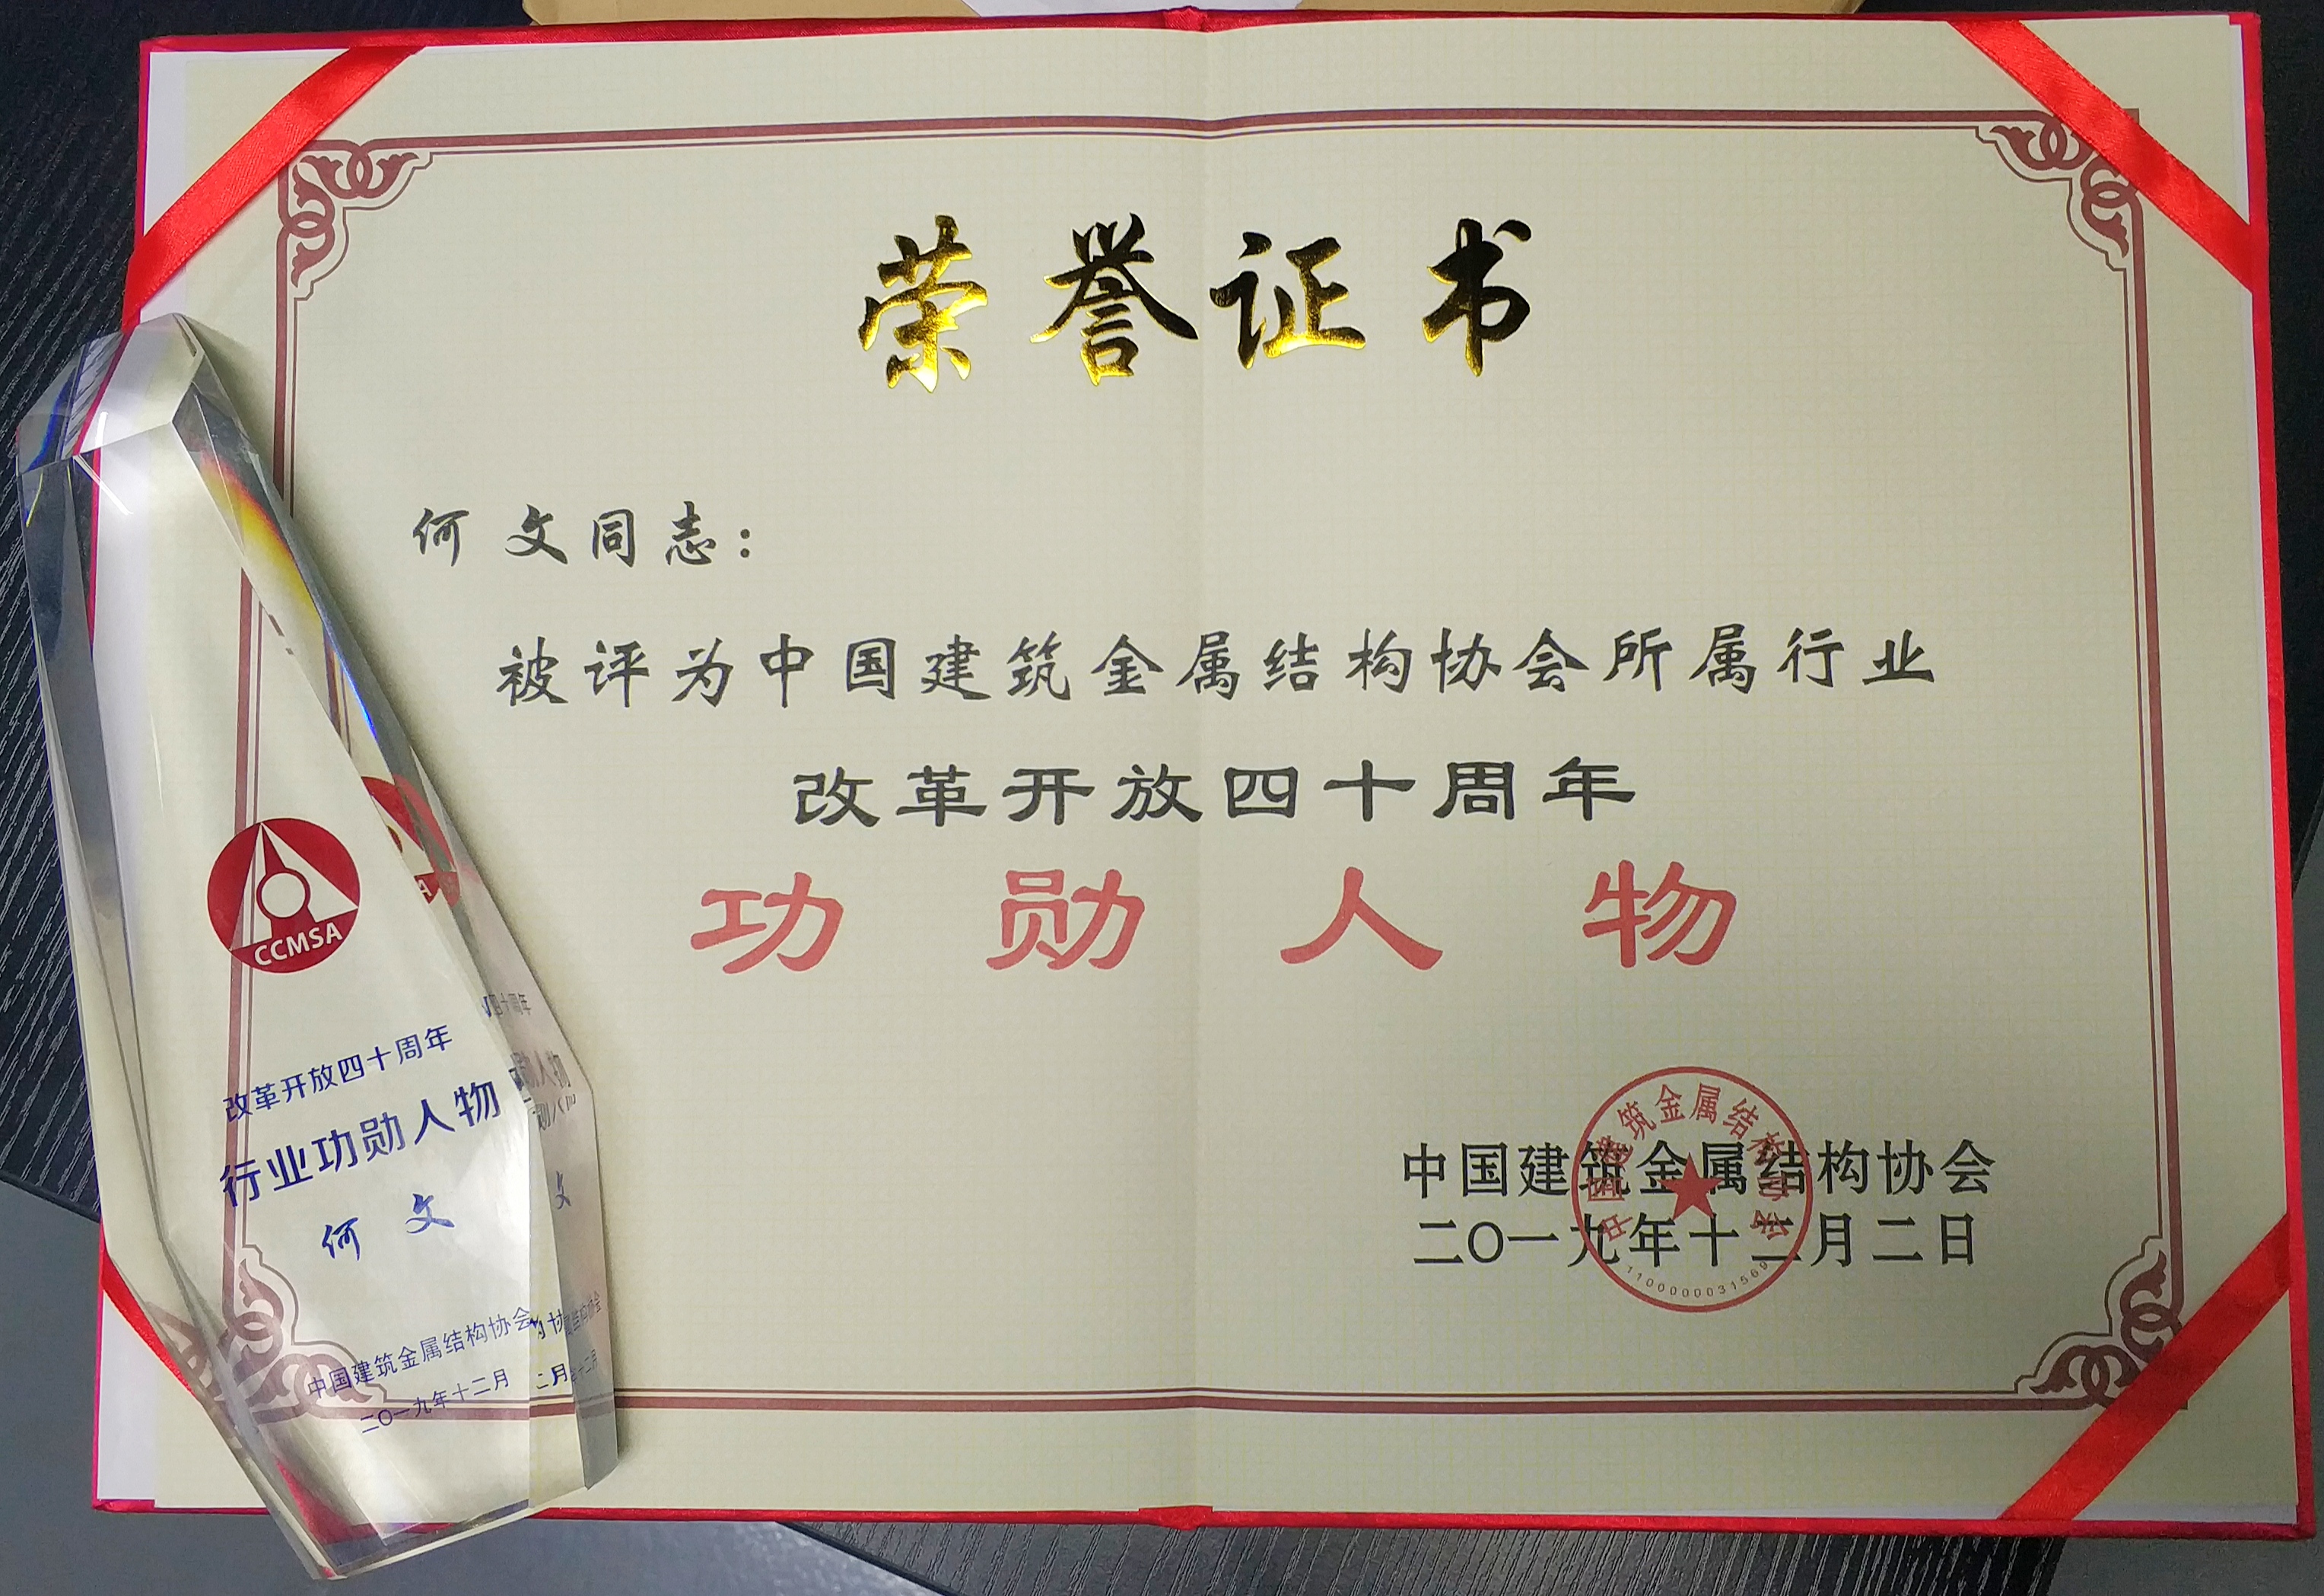 荣誉证书
何文同志：
被评为中国建筑金属结构协会所属行业
改革开放四十周年
功勋人物
中国建筑金属结构协会
二〇一九年十二月二日
中国建筑金属结构协会
1100000031569
CCMSA
改革开放四十周年
行业功勋人物
何文
中国建筑金属结构协会
二〇一九年十二月